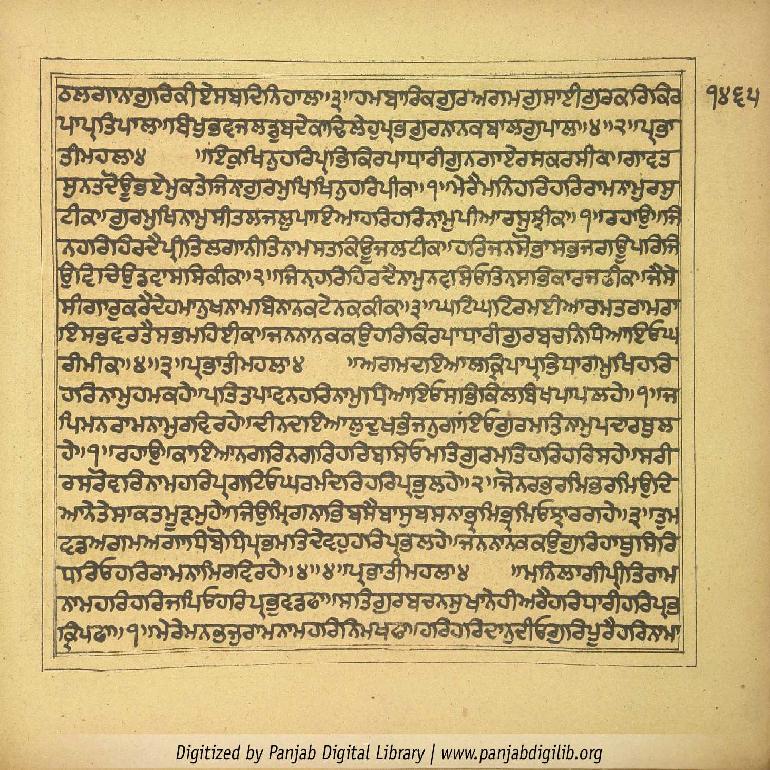 ਠਲਗਾਨਗੁਰਿਕੀਏਸਬਦਿਨਿਹਾਲਾ॥੩॥ਹਮਬਾਰਿਕਗੁਰਅਗਮਗੁਸਾਈਗੁਰਕਰਿਕਿਰ
੧੪੬੫
ਪਾਪ੍ਰਤਿਪਾਲਾ॥ਬਿਖੁਭਵਜਲਡੁਬਦੇਕਾਢਿਲੇਹੁਪ੍ਰਭਗੁਰਨਾਨਕਬਾਲਗੁਪਾਲਾ॥੪॥੨॥ਪ੍ਰਭਾ
ਤੀਮਹਲਾ੪ ॥ਇਕੁਖਿਨੁਹਰਿਪ੍ਰਭਿਕਿਰਪਾਧਾਰੀਗੁਨਗਾਏਰਸਕਰਸੀਕ॥ਗਾਵਤ
ਸੁਨਤਦੋਊਭਏਮੁਕਤੇਜਿਨਾਗੁਰਮੁਖਿਖਿਨੁਹਰਿਪੀਕ॥੧॥ਮੇਰੈਮਨਿਹਰਿਹਰਿਰਾਮਨਾਮੁਰਸੁ
ਟੀਕ॥ਗੁਰਮੁਖਿਨਾਮੁਸੀਤਲਜਲੁਪਾਇਆਹਰਿਹਰਿਨਾਮੁਪੀਆਰਸੁਝੀਕ॥੧॥ਰਹਾਉ॥ਜਿ
ਨਹਰਿਹਿਰਦੈਪ੍ਰੀਤਿਲਗਾਨੀਤਿਨਾਮਸਤਕਿਊਜਲਟੀਕ॥ਹਰਿਜਨਸੋਭਾਸਭਜਗਊਪਰਿਜਿ
ਉਵਿਚਿਉਡਵਾਸਸਿਕੀਕ॥੨॥ਜਿਨਹਰਿਹਿਰਦੈਨਾਮੁਨਵਸਿਓਤਿਨਸਭਿਕਾਰਜਫੀਕ॥ਜੈਸੇ
ਸੀਗਾਰੁਕਰੈਦੇਹਮਾਨੁਖਨਾਮਬਿਨਾਨਕਟੇਨਕਕੀਕ॥੩॥ਘਟਿਘਟਿਰਮਈਆਰਮਤਰਾਮਰਾ
ਇਸਭਵਰਤੈਸਭਮਹਿਈਕ॥ਜਨਨਾਨਕਕਉਹਰਿਕਿਰਪਾਧਾਰੀਗੁਰਬਚਨਿਧਿਆਇਓਘ
ਰੀਮੀਕ॥੪॥੩॥ਪ੍ਰਭਾਤੀਮਹਲਾ੪ ॥ਅਗਮਦਇਆਲਕ੍ਰਿਪਾਪ੍ਰਭਿਧਾਰੀਮੁਖਿਹਰਿ
ਹਰਿਨਾਮੁਹਮਕਹੇ॥ਪਤਿਤਪਾਵਨਹਰਿਨਾਮੁਧਿਆਇਓਸਭਿਕਿਲਬਿਖਪਾਪਲਹੇ॥੧॥ਜ
ਪਿਮਨਰਾਮਨਾਮੁਰਵਿਰਹੇ॥ਦੀਨਦਇਆਲੁਦੁਖਭੰਜਨੁਗਾਇਓਗੁਰਮਤਿਨਾਮੁਪਦਾਰਥੁਲ
ਹੇ॥੧॥ਰਹਾਉ॥ਕਾਇਆਨਗਰਿਨਗਰਿਹਰਿਬਸਿਓਮਤਿਗੁਰਮਤਿਹਰਿਹਰਿਸਹੇ॥ਸਰੀ
ਰਸਰੋਵਰਿਨਾਮਹਰਿਪ੍ਰਗਟਿਓਘਰਮੰਦਿਰਿਹਰਿਪ੍ਰਭੁਲਹੇ॥੨॥ਜੋਨਰਭਰਮਿਭਰਮਿਉਦਿ
ਆਨੇਤੇਸਾਕਤਮੂੜਮੁਹੇ॥ਜਿਉਮ੍ਰਿਗਨਾਭਿਬਸੈਬਾਸੁਬਸਨਾਭ੍ਰਮਿਭ੍ਰਮਿਓਝਾਰਗਹੇ॥੩॥ਤੁਮ
ਵਡਅਗਮਅਗਾਧਿਬੋਧਿਪ੍ਰਭਮਤਿਦੇਵਹੁਹਰਿਪ੍ਰਭਲਹੇ॥ਜਨਨਾਨਕਕਉਗੁਰਿਹਾਥੁਸਿਰਿ
ਧਰਿਓਹਰਿਰਾਮਨਾਮਿਰਵਿਰਹੇ॥੪॥੪॥ਪ੍ਰਭਾਤੀਮਹਲਾ੪ ॥ਮਨਿਲਾਗੀਪ੍ਰੀਤਿਰਾਮ
ਨਾਮਹਰਿਹਰਿਜਪਿਓਹਰਿਪ੍ਰਭੁਵਡਫਾ॥ਸਤਿਗੁਰਬਚਨਸੁਖਾਨੇਹੀਅਰੈਹਰਿਧਾਰੀਹਰਿਪ੍ਰਭ
ਕ੍ਰਿਪਫਾ॥੧॥ਮੇਰੇਮਨਭਜੁਰਾਮਨਾਮਹਰਿਨਿਮਖਫਾ॥ਹਰਿਹਰਿਦਾਨੁਦੀਓਗੁਰਿਪੂਰੈਹਰਿਨਾਮਾ
Digitized by Panjab Digital Library | www.panjabdigilib.org